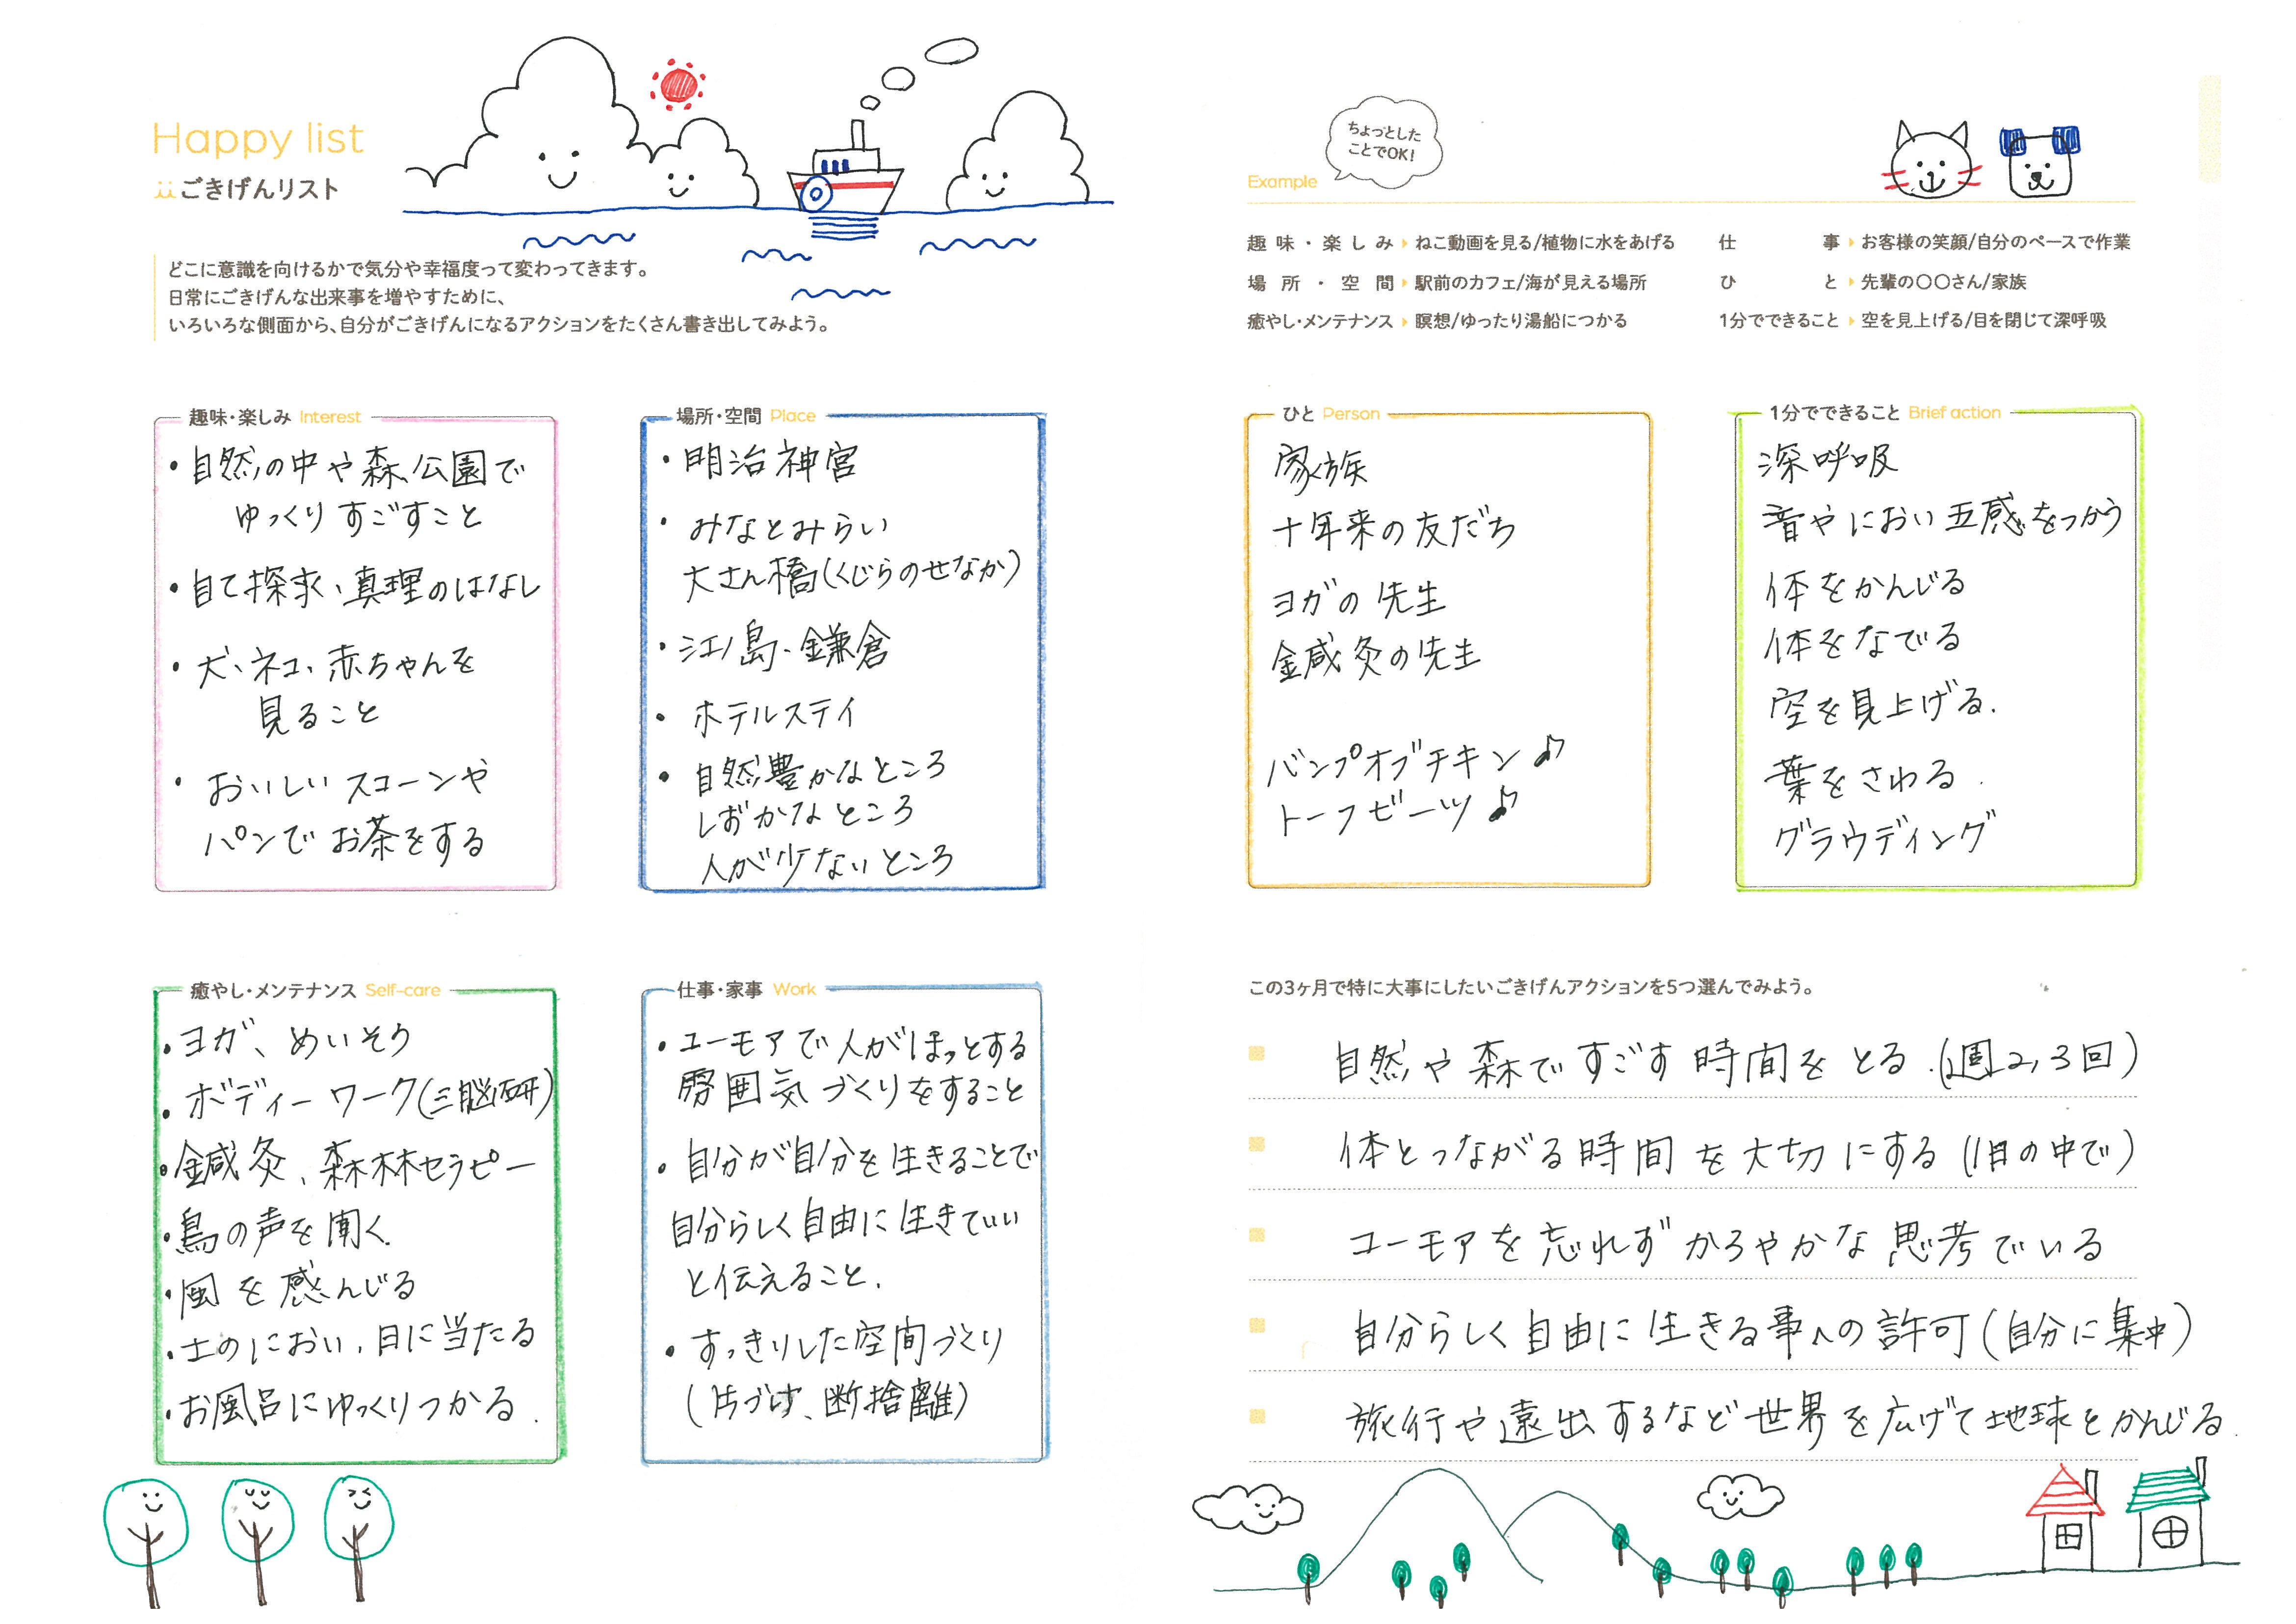 Happy list
ごきげんリスト
どこに意識を向けるかで気分や幸福度って変わってきます。
日常にごきげんな出来事を増やすために、
いろいろな側面から、自分がごきげんになるアクションをたくさん書き出してみよう。
趣味・楽しみ Interest
・自然の中や森、公園で
ゆっくりすごすこと
・自て探求、真理のはなし
・犬、ネコ、赤ちゃんを
見ること
・おいしいスコーンや
パンでお茶をする
場所・空間 Place
・明治神宮
・みなとみらい
大さん橋(くじらのせなか)
・江ノ島・鎌倉
・ホテルステイ
・自然豊かなところ
しずかなところ
人が少ないところ
癒やし・メンテナンス Self-care
・ヨガ、めいそう
・ボディーワーク(三脳研)
・鍼灸、森林セラピー
・鳥の声を聞く.
・風を感んじる
・土のにおい、日に当たる
・お風呂にゆっくりつかる.
仕事・家事 Work
・ユーモアで人がほっとする
雰囲気づくりをすること
・自分が自分を生きることで
自分らしく自由に生きていい
と伝えること.
・すっきりした空間づくり
(片づけ、断捨離)
ちょっとした
ことでOK!
Example
趣味・楽しみ ねこ動画を見る/植物に水をあげる
仕事 お客様の笑顔/自分のペースで作業
場所・空間 駅前のカフェ/海が見える場所
ひと 先輩の〇〇さん/家族
癒やし・メンテナンス 瞑想/ゆったり湯船につかる
1分でできること 空を見上げる/目を閉じて深呼吸
ひと Person
家族
十年来の友だち
ヨガの先生
鍼灸の先生
バンプオブチキン♪
トーフビーツ♪
1分でできること Brief action
深呼吸
音やにおい五感をつかう
体をかんじる
体をなでる
空を見上げる.
葉をさわる.
グラウディング
この3ヶ月で特に大事にしたいごきげんアクションを5つ選んでみよう。
自然や森ですごす時間をとる.(週2,3回)
体とつながる時間を大切にする(1日の中で)
ユーモアを忘れずかろやかな思考でいる
自分らしく自由に生きる事への許可(自分に集中)
旅行や遠出するなど世界を広げて地球をかんじる.